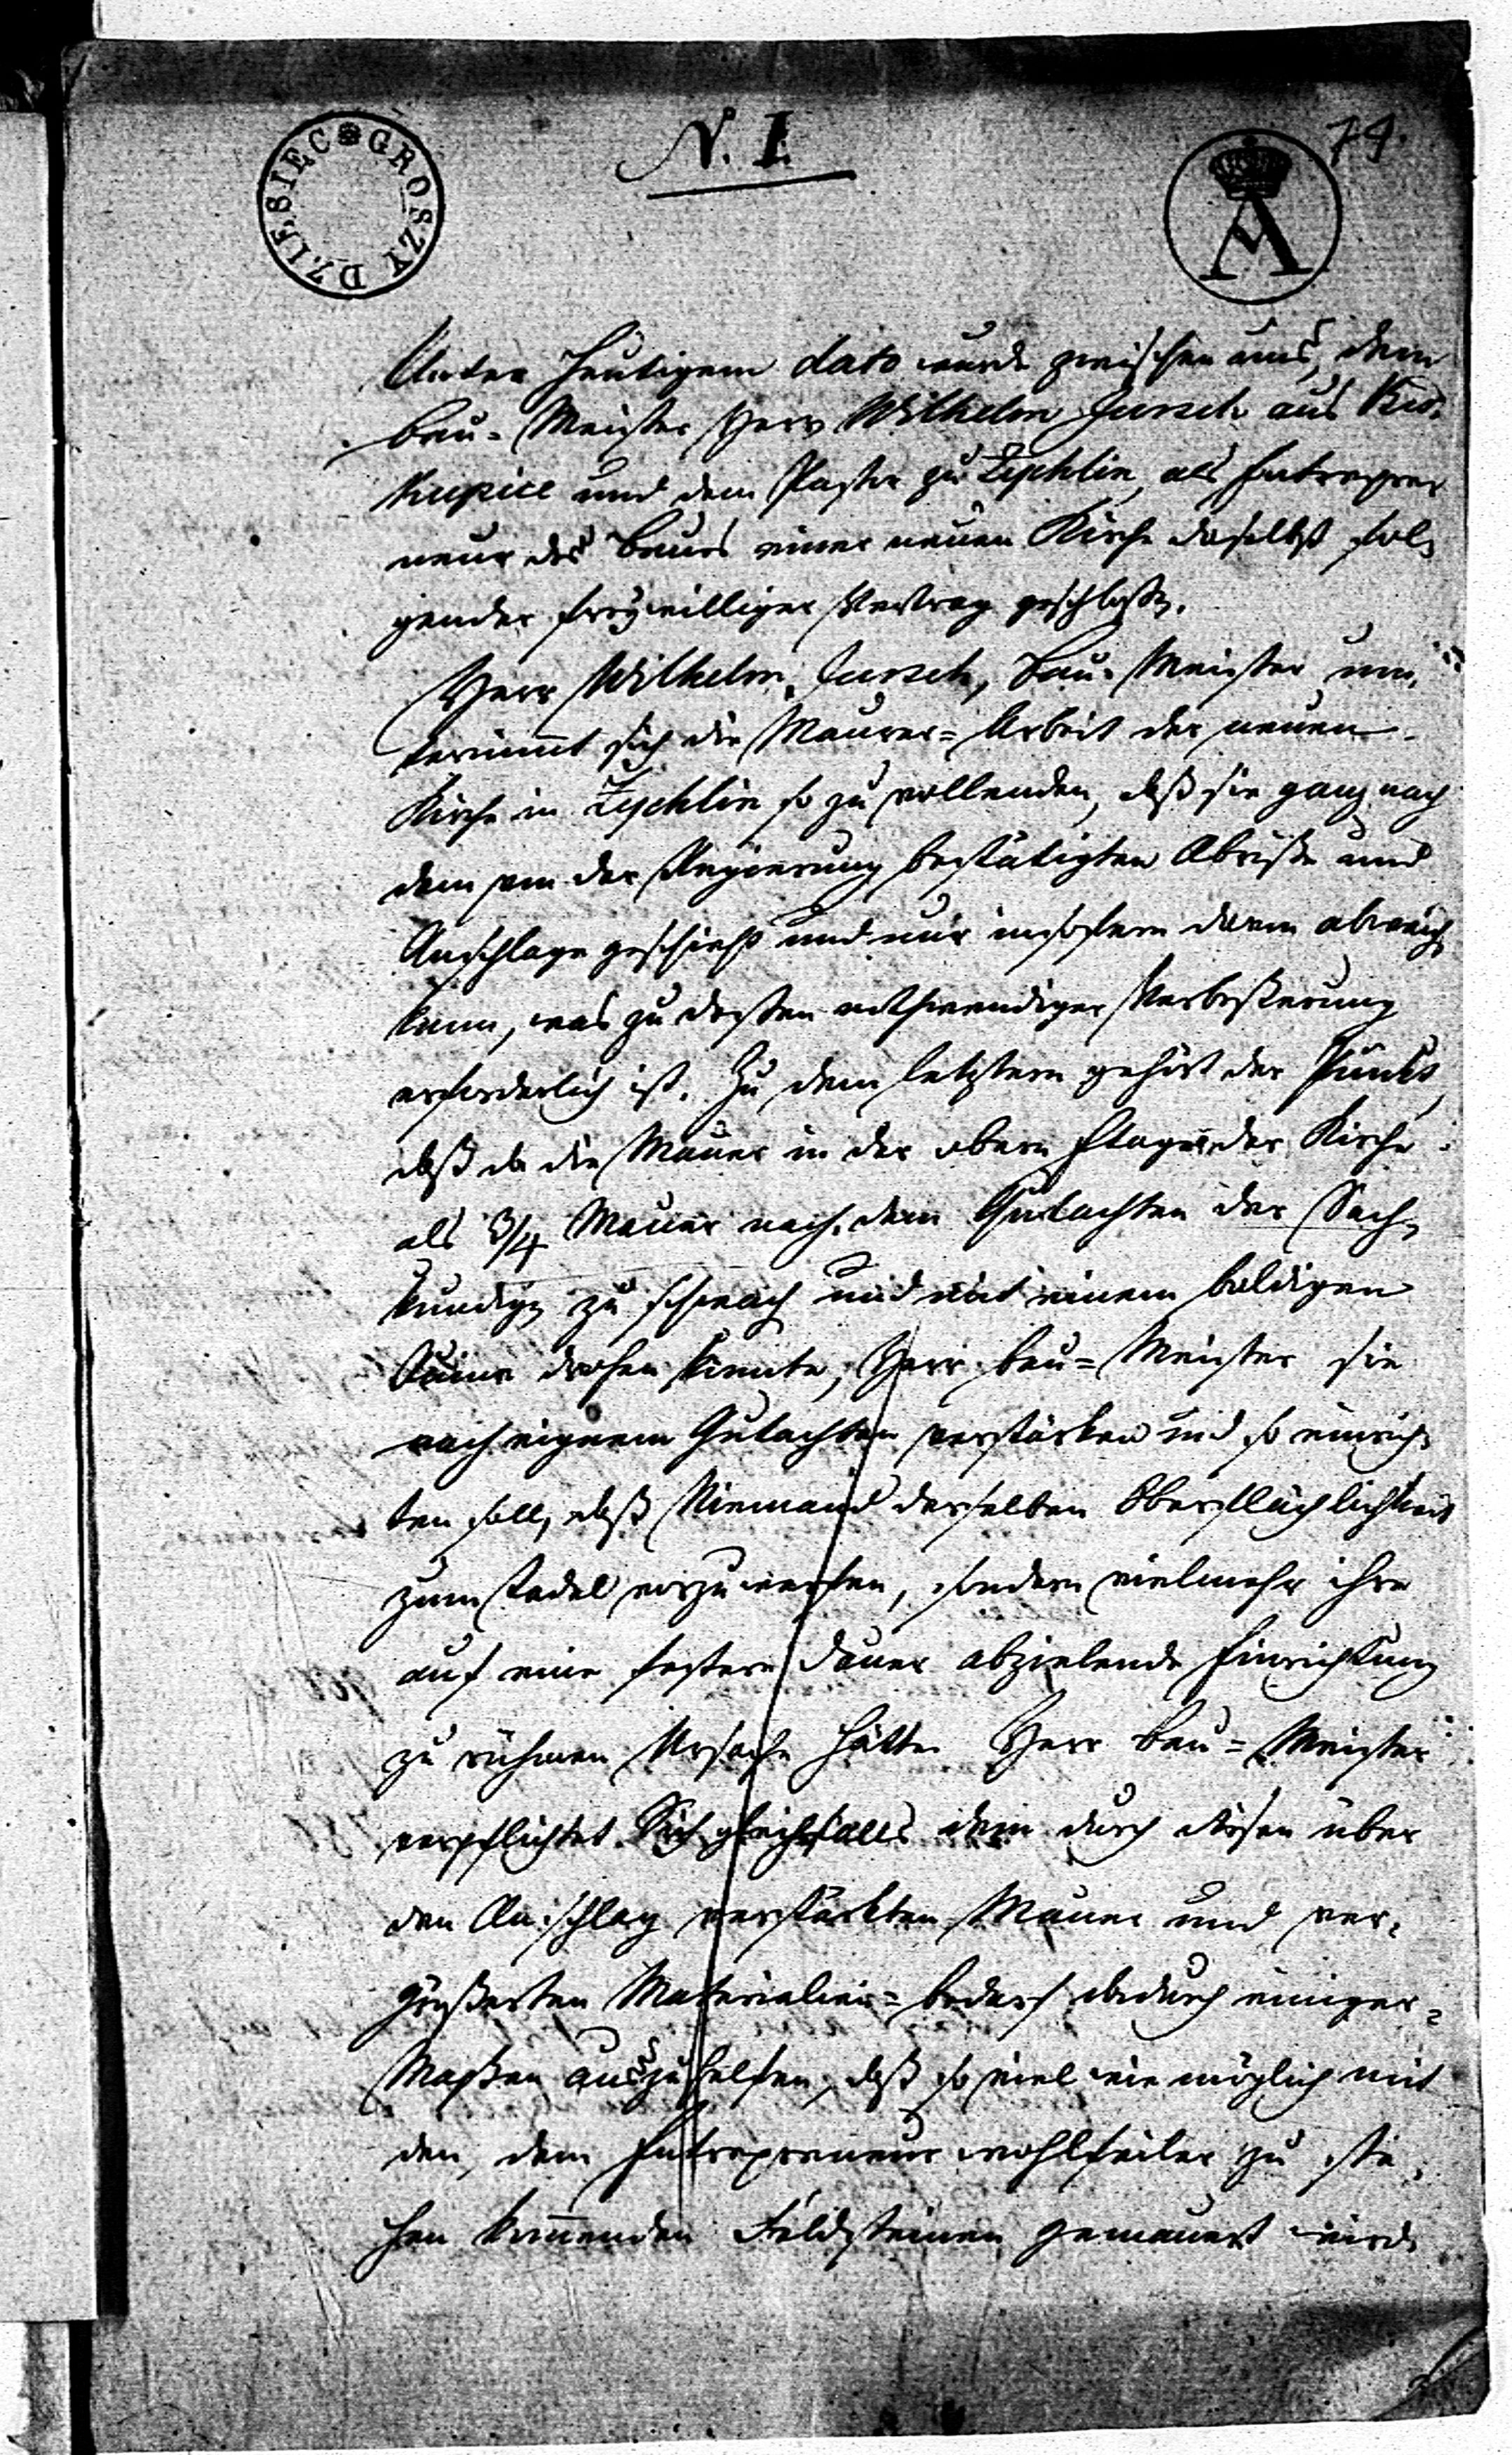 N. I.
74.
DZIESIEC GROSZY
A
Unter heutigem dato wurde zwischen uns, dem
Bau-Meister Herr Wilhelm Jursch aus
und dem Pastor zu Zychlin, als Entrepre
neur des Baues einer neuen Kirche daselbst fol,
gender freywilliger Vertrag geschloßen.
Herr Wilhelm Jursch, Bau-Meister un,
ternimmt sich die Maurer=Arbeit der neuen
Kirche in Zychlin so zu vollenden, daß sie ganz nach
dem von der Regierung bestätigten Abriße und
Anschlage geschieht und nur insofern davon abweich,
kann, was zu deßen nothwendiger Verbeßerung
erforderlich ist. Zu dem letztern gehört der Punkt,
daß da die Mauer in der obern Etage der Kirche
als 3/4 Mauer nach dem Gutachten der Sach,
kundigen zu schwach und mit einem baldigen
Ruine drohen könnte, Herr Bau=Meister sie
nach eignem Gutachten verstärken und so einrich,
ten soll, daß Niemand derselben Oberflächlichkeit
zum Tadel vorzuwerfen, sondern vielmehr ihre
auf eine festere Dauer abzielende Einrichtung
zu rühmen Ursache hätte. Herr Bau=Meister
verpflichtet Sich gleichfalls dem durch diesen über
den Anschlag verstärkten Mauer und ver,
größerten Materialien=Bedarf dadurch einiger=
Maßen auszuhelfen, daß so viel wie möglich mit
den, dem Entrepreneur wohlfeiler zu ste,
hen kommenden Feldsteinen gemauert wird